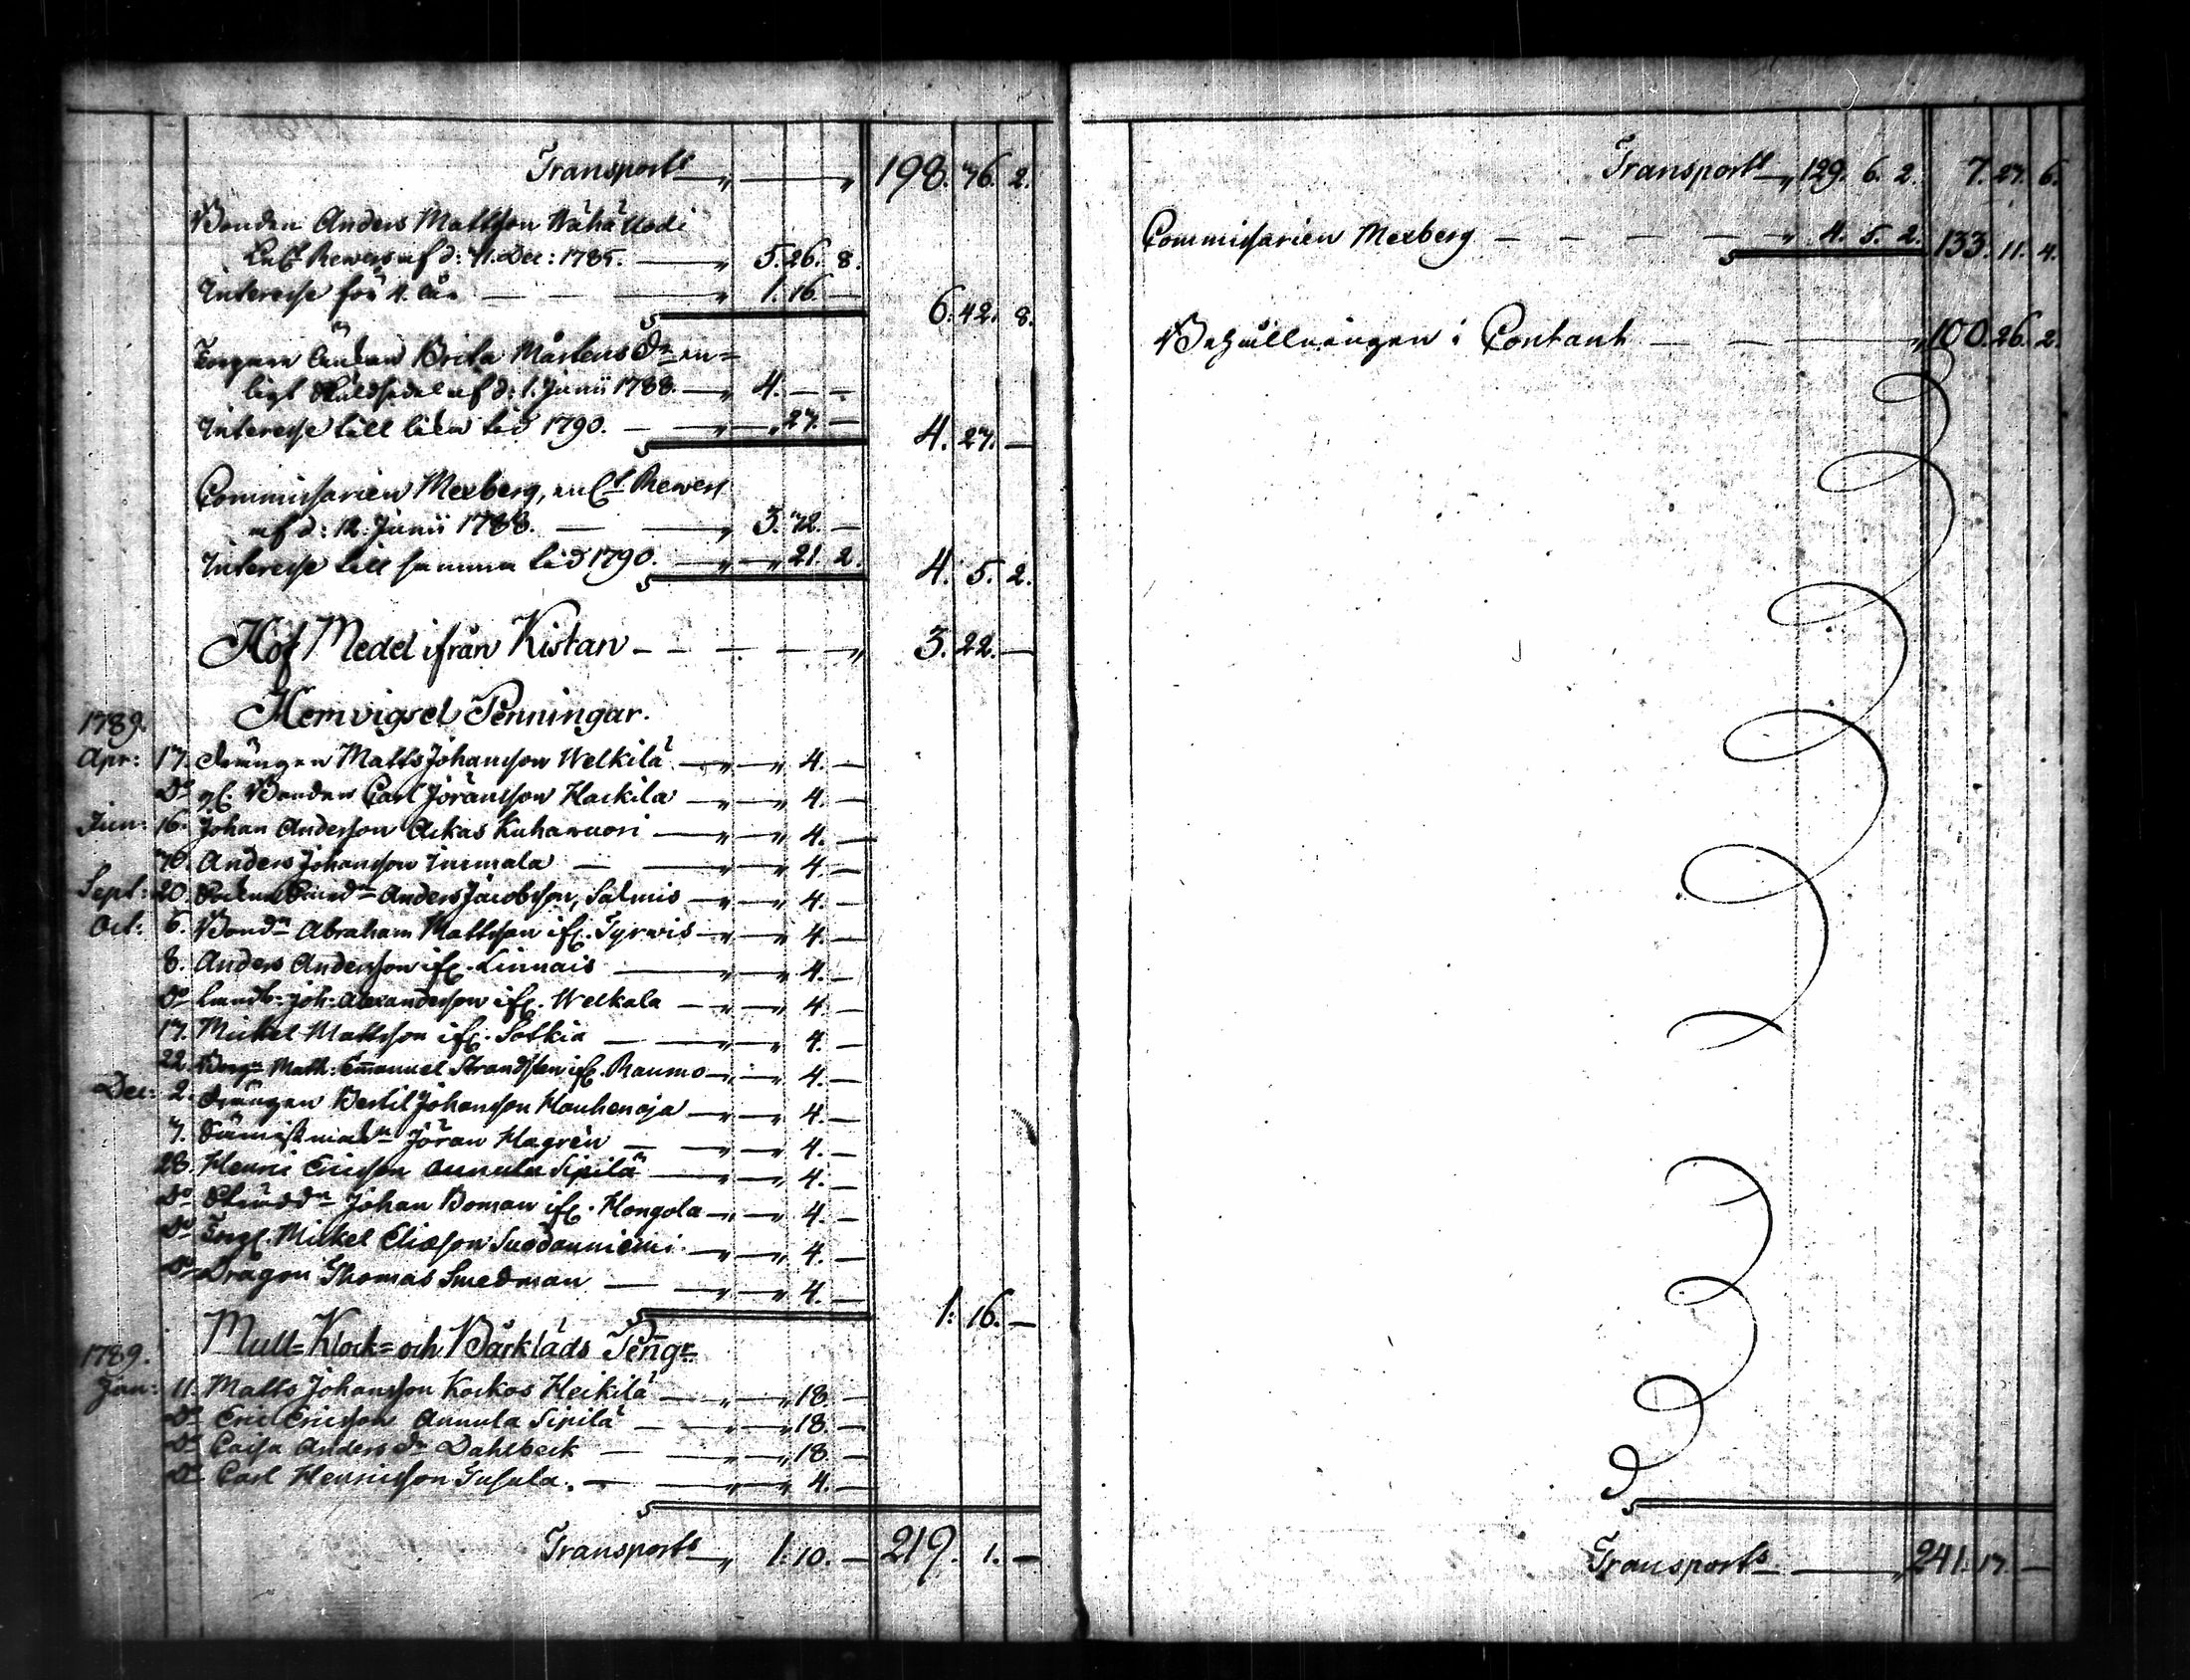 Transport 198. 46. 2.
Bonden Anders Mattsson Wähä Uodi
enl.t Revers af d: 11. Dec: 1785. 5. 26. 8.
Interesse för 4. år 1. 16. — 6. 42. 8.
Enkan Brita Mårtens Dr en=
ligt Skuldsedel af d: 1. Junii 1788. 4. — —
Interesse till lika tid 1790. 27. — 4. 27. —
Commissarien Mexberg, enl.t Revers
af d: 12. Junii 1788. 3. 32. —
Interesse till samma tid 1790. 21. 2. 4. 5. 2.
Håf Medel ifrån Kistan 3. 22. —
1789. Hemvigsel Penningar.
Apr: 17. Drängen Matts Johansson Welkilä 4. —
Do Bonden Carl Jöransson Hackila 4. —
Jun: 16. Johan Andersson Ackas Kuhawuori 4. —
Anders Johansson 4. —
Sept: 20. Anders Jacobsson, Salmis 4. —
Oct: 6. Bondn Abraham Mattsson ifr. Tyrwis 4. —
8. Anders Andersson ifr. Linnais 4. —
Do Landb: Joh: Alexandersson ifr. Welkala 4. —
17. Mickel Mattsson ifr. Sotkia 4. —
22. Math: Emanuel Strandsten ifr. Raumo 4. —
Dec: 2. Drängen Bertil Johansson Hauhenoja 4. —
7. Jöran Hagrèn 4. —
28. Henric Ericsson Annula Sipilä 4. —
Do Johan Boman ifr. Hongola 4. —
Do Mickel Eliasson Suodenniemi 4. —
Do Dragon Thomas Smedman 4. — 1: 16. —
Mull= Klock= och Bårkläds Peng:r
1789.
Jan: 11. Matts Johansson Kockos Heikilä 18. —
Do Eric Ericsson Annula Sipilä 18. —
Do Caisa Anders Dr Dahlbeck 18. —
Do Carl Henricsson Tusula. 4. —
Transport 1: 10. — 219. 1. —
Transport 129. 6. 2. 7. 27. 6.
Commissarien Mexberg 4. 5. 2. 133. 11. 4.
Behållningen i Contant 100. 26. 2.
Transport 241. 17. —